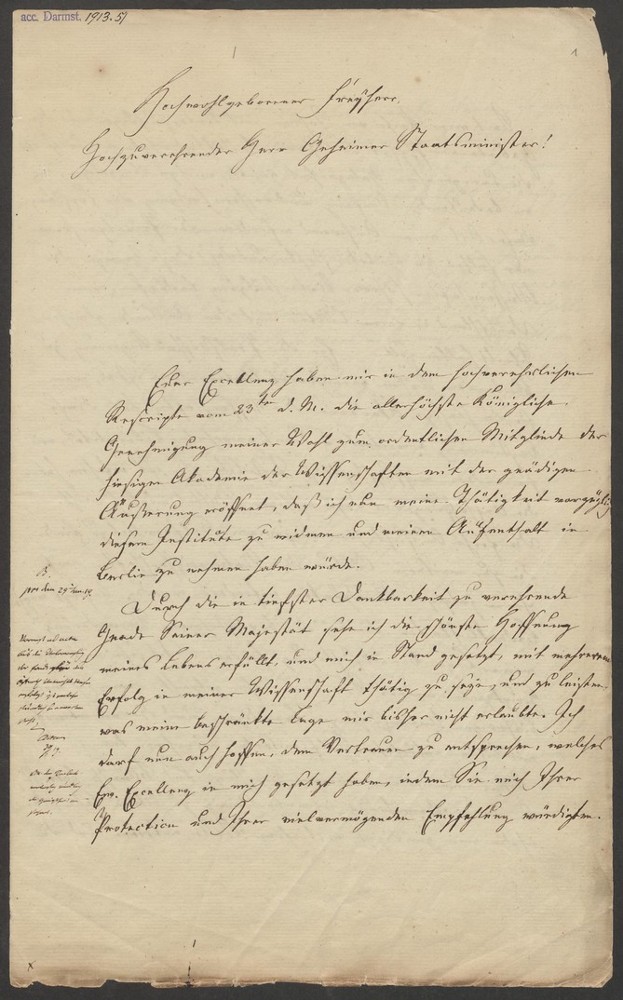 acc. Darmst. 1913. 51
1
Hochwohlgeborener Freyherr.
Hochzuverehrender Herr Geheimer Staatsminister!
Euer Excellenz haben mir in dem hochverehrlichen
Rescripte vom 23ten d. M. die allerhöchste Königliche
Genehmigung meiner Wahl zum ordentlichen Mitgliede der
hiesigen Akademie der Wissenschaften mit der gnädigen
Äußerung eröffnet, daß ich nun meine Thätigkeit vorzüglich
diesem Institute zu widmen und meinen Aufenthalt in
Berlin zu nehmen haben würde.
Durch die in tiefster Dankbarkeit zu verehrende
Gnade Seiner Majestät sehe ich die schönste Hoffnung
meines Lebens erfüllt, und mich in Stand gesetzt, mit mehrerem
Erfolg in meiner Wissenschaft thätig zu seyn, und zu leisten,
was meine beschränkte Lage mir bisher nicht erlaubte. Ich
darf nun auch hoffen, dem Vertrauen zu entsprechen, welches
Ew. Excellenz in mich gesetzt haben, indem Sie mich Ihrer
Protection und Ihrer vielvermögenden Empfehlung würdigten.